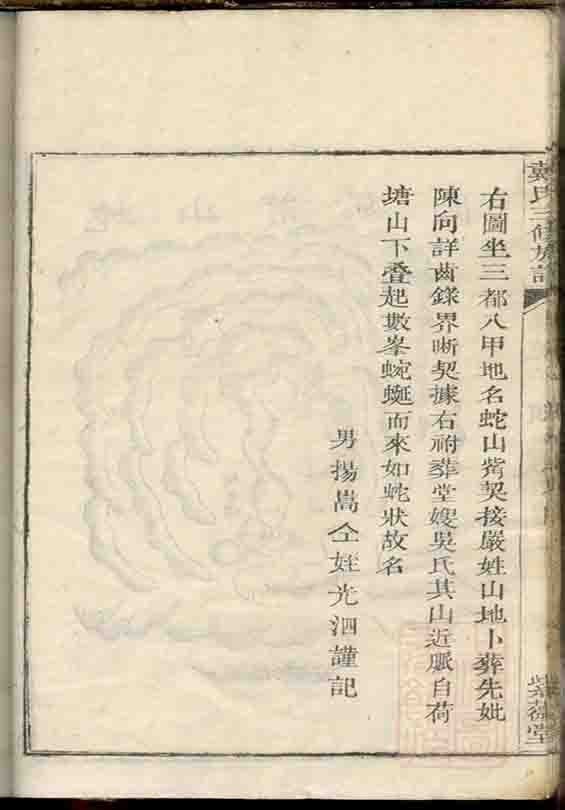 戴氏三修族譜
紫薇堂
右圖坐三都八甲地名蛇山嘴契接嚴姓山地卜葬先妣
陳向詳齒錄界晰契據右祔葬堂嫂吳氏其山近脈自荷
塘山下疊起數峯蜿蜒而來如蛇狀故名
男揚嵩仝姪光泗謹記